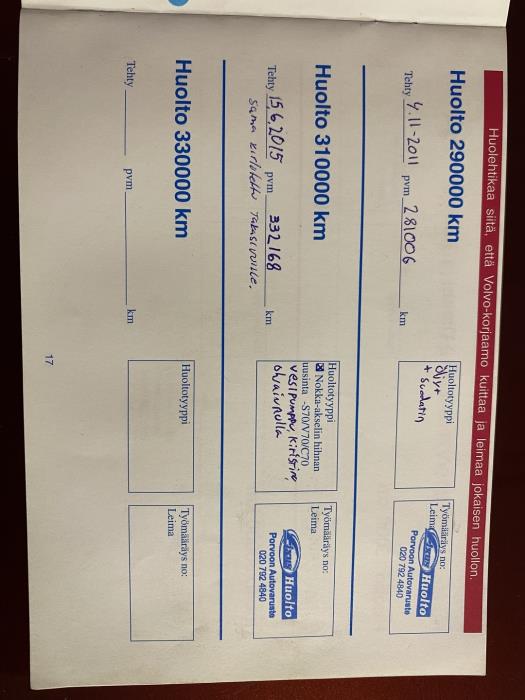 Huolehtikaa siitä, että Volvo-korjaamo kuittaa ja leimaa jokaisen huollon.
Huolto 290000 km
Tehty 4.11-2011 pvm 281006 km
Huoltotyyppi
Öljyt
+ suodatin
Työmääräys no:
Leima
Fixus Huolto
Porvoon Autovaruste
020 792 4840
Huolto 310000 km
Tehty 15.6.2015 pvm 332168 km
sama kirjoitettu takasivuille.
Huoltotyyppi
☒ Nokka-akselin hihnan
uusinta -S70/V70/C70
vesipumppu, kiristin,
ohjainrulla
Työmääräys no:
Leima
Fixus Huolto
Porvoon Autovaruste
020 792 4840
Huolto 330000 km
Tehty pvm km
Huoltotyyppi
Työmääräys no:
Leima
17